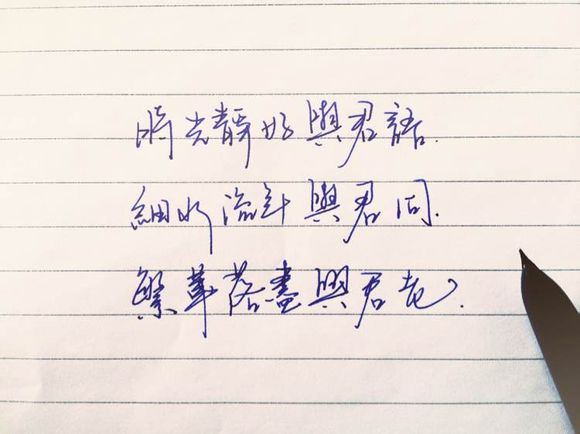 時光靜好與君語.
細水流年與君同.
繁華落盡與君老.